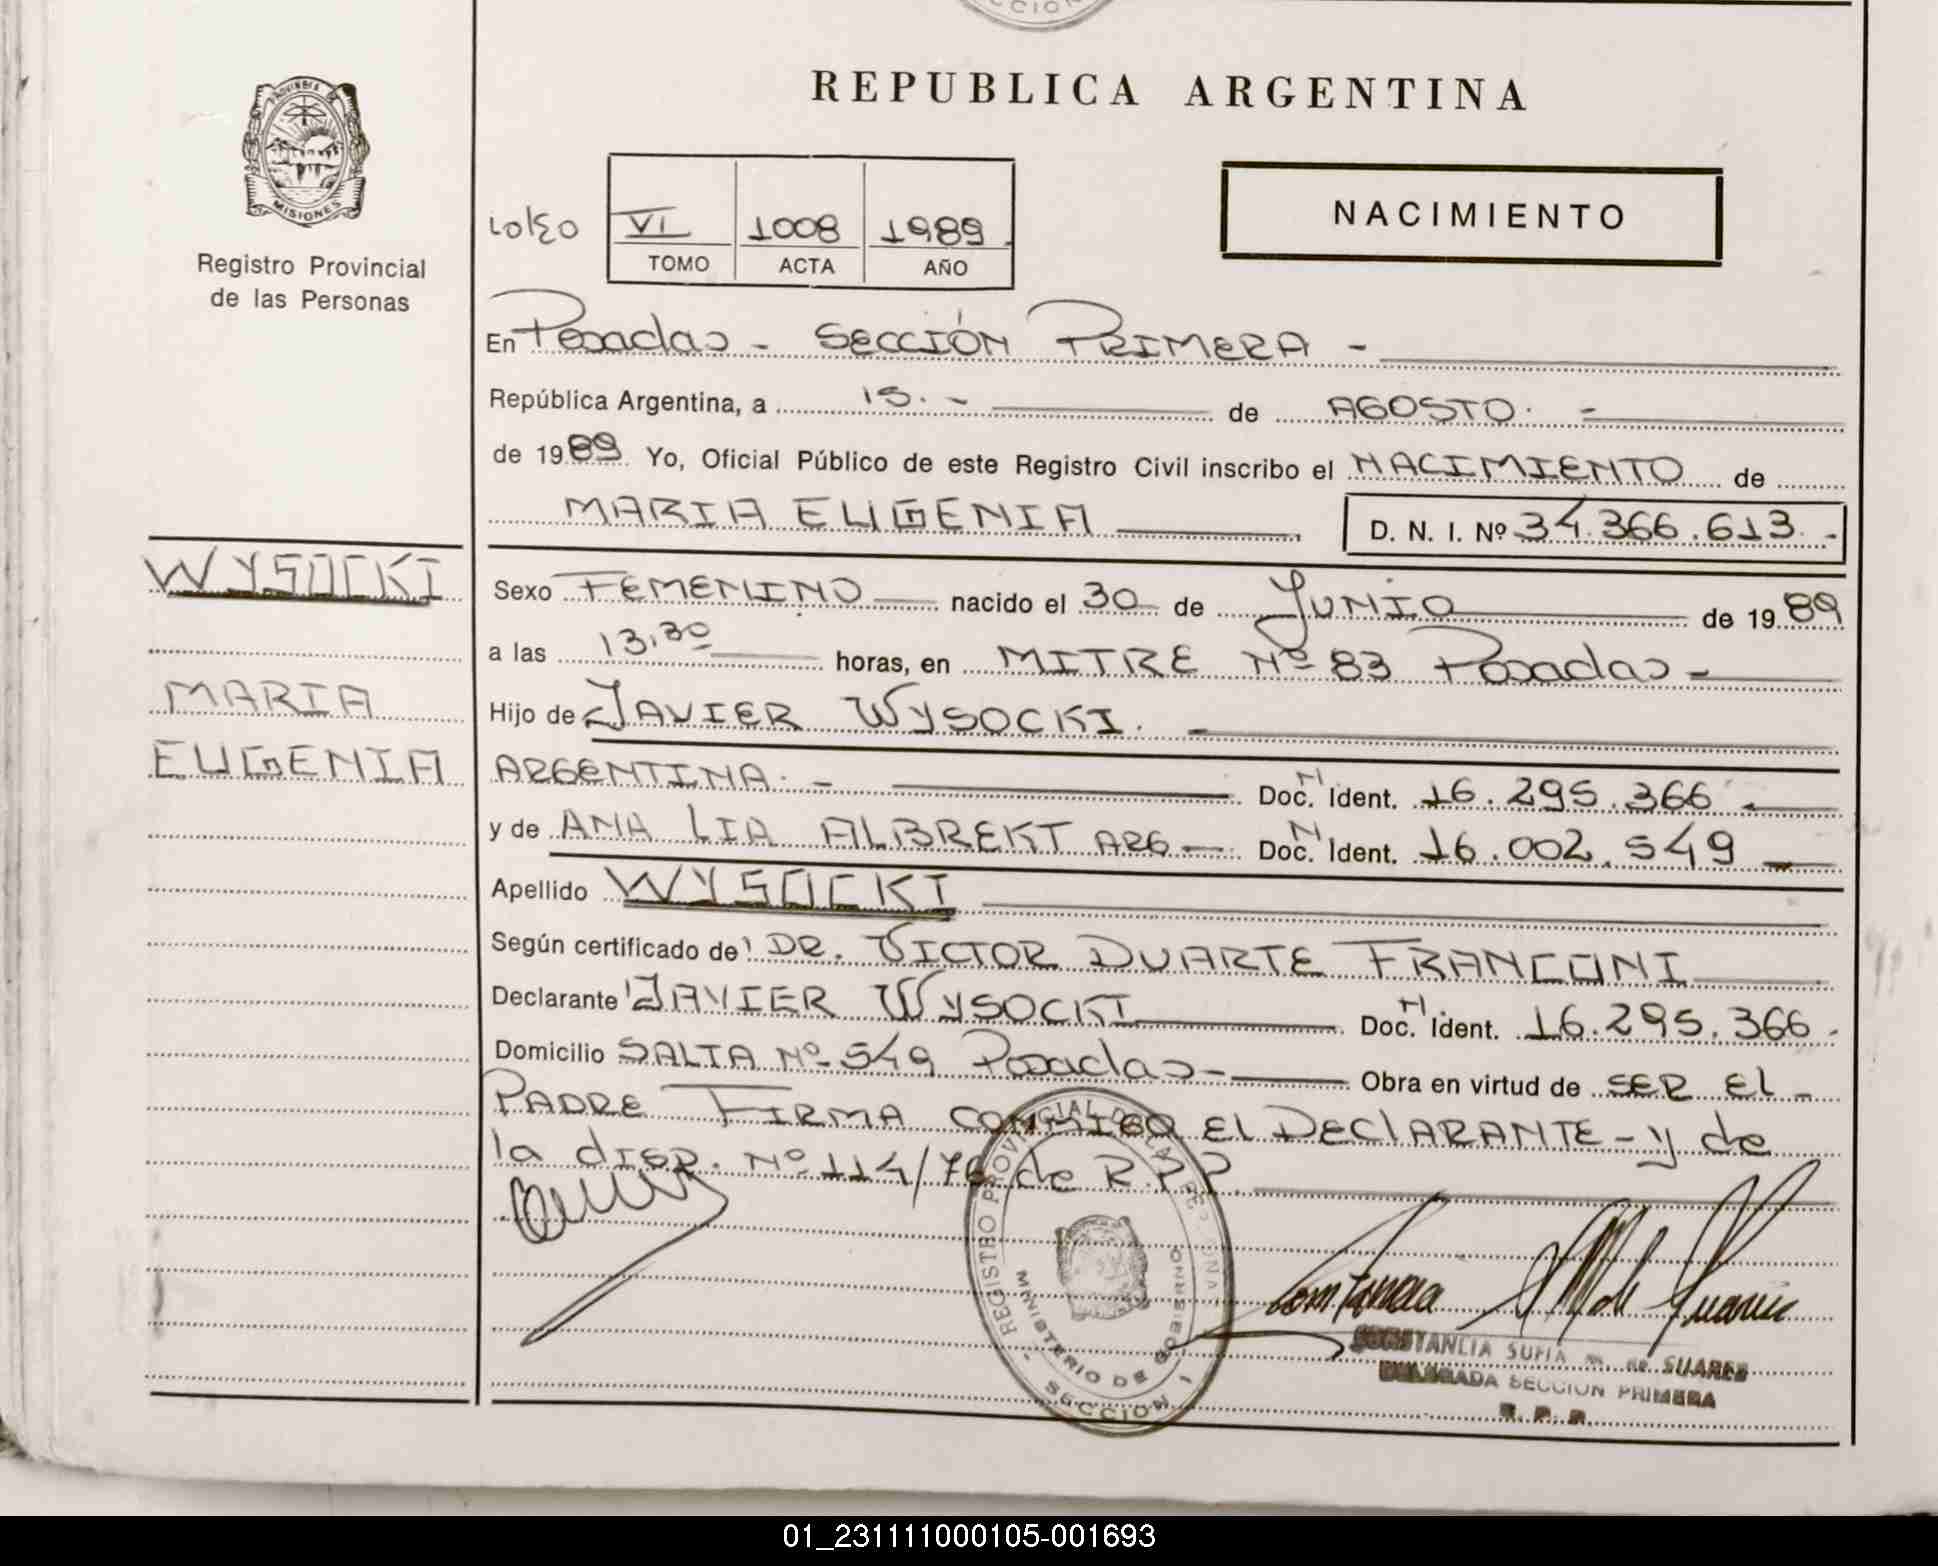 CCION
REPUBLICA ARGENTINA
PROVINCIA DE
MISIONES
Registro Provincial
de las Personas
VI 1008 1989
TOMO ACTA AÑO
NACIMIENTO
En Posadas - SECCIÓN PRIMERA -
República Argentina, a 15. - de AGOSTO. -
de 1989 Yo, Oficial Público de este Registro Civil inscribo el NACIMIENTO de
MARIA EUGENIA D. N. I. Nº 34.366.613. -
WYSOCKI
MARIA
EUGENIA
Sexo FEMENINO nacido el 30 de JUNIO de 1989
a las 13,30 horas, en MITRE Nº 83 Posadas -
Hijo de JAVIER WYSOCKI. -
ARGENTINA. - Doc. N Ident. 16.295.366 -
y de ANA LIA ALBREKT ARG - Doc. N Ident. 16.002.549 -
Apellido WYSOCKI
Según certificado de DR. VICTOR DUARTE FRANCONI
Declarante JAVIER WYSOCKI Doc. N Ident. 16.295.366.
Domicilio SALTA Nº 549 Posadas - Obra en virtud de SER EL -
PADRE FIRMA CONMIGO EL DECLARANTE - y de
la DISP. Nº 114/76 de R.P.P.
REGISTRO PROVINCIAL DE LAS PERSONAS
MINISTERIO DE GOBIERNO
SECCION 1
Constancia M de Suares
CONSTANCIA SOFIA M. de SUARES
DELEGADA SECCION PRIMERA
R. P. P.
01_231111000105-001693